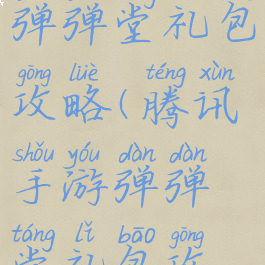 弹弹堂礼包
gōng lüè téng xùn
攻略(腾讯
shǒu yóu dàn dàn
手游弹弹
táng lǐ bāo gōng
堂礼包攻